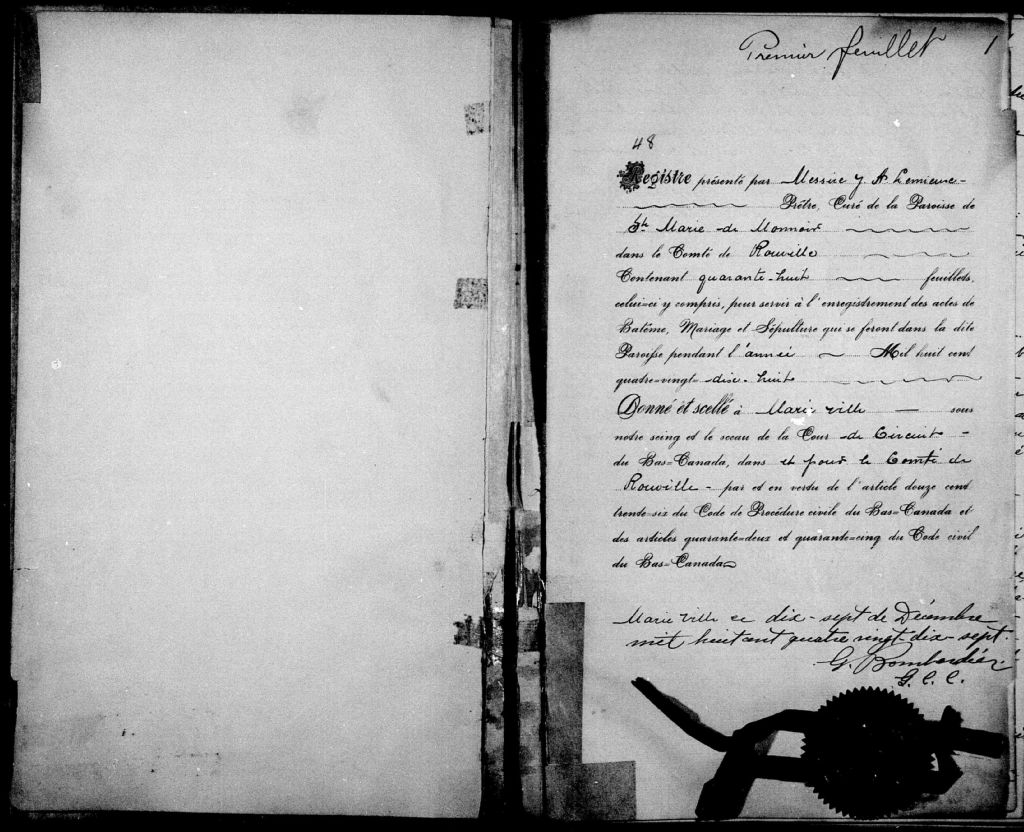 Premier feuillet 1
48
Registre présenté par Messire J. A Lemieux
Prêtre, Curé de la Paroisse de
Ste Marie de Monnoir
dans le Comté de Rouville
Contenant quarante-huit feuillets,
celui=ci y compris, pour servir à l'enregistrement des actes de
Batême, Mariage et Sépulture qui se feront dans la dite
Paroisse pendant l'année Mil huit cent
quatre=vingt= dix-huit
Donné et scellé à Marieville sous
notre seing et le sceau de la Cour de Circuit
du Bas=Canada, dans et pour le Comté de
Rouville - par et en vertu de l'article douze cent
trente=six du Code de Procédure civile du Bas=Canada et
des articles quarante=deux et quarante=cinq du Code civil
du Bas=Canada
Marieville ce dix-sept de Décembre
mil huit cent quatre vingt-dix-sept.
G. Bombardier
G. C. C.